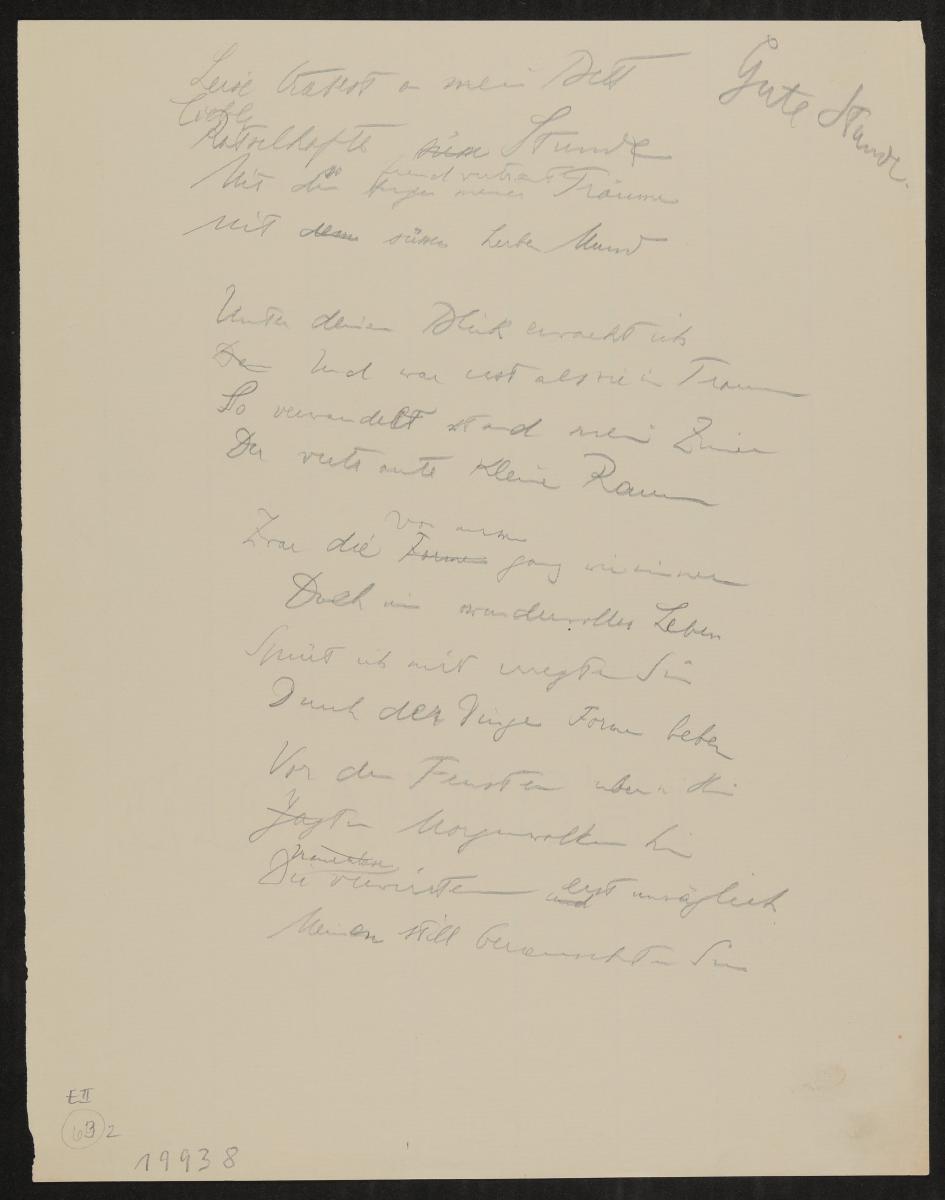 Gute Stunde.
Leise tratest an mein Bett
liebe
Rätselhafte süsse Stunde
fremd vertraut
Mit den Augen meiner Träume
Mit dem süssen herben Mund
Unter deinem Blick erwacht ich
Da Und war erst als wie im Traum
So verwandelt stand mein Zimmer
Der vertraute kleine Raum
Zwar die Formen ganz wie immer
Doch ein wundervolles Leben
Spürt ich mit erregtem Sinn
Durch der Dinge Formen beben
Vor den Fenstern
Jagten Morgenwolken hin
Die verwirrten erst unsäglich
und
Meinen still berauschten Sinn
E II
63 2
19938